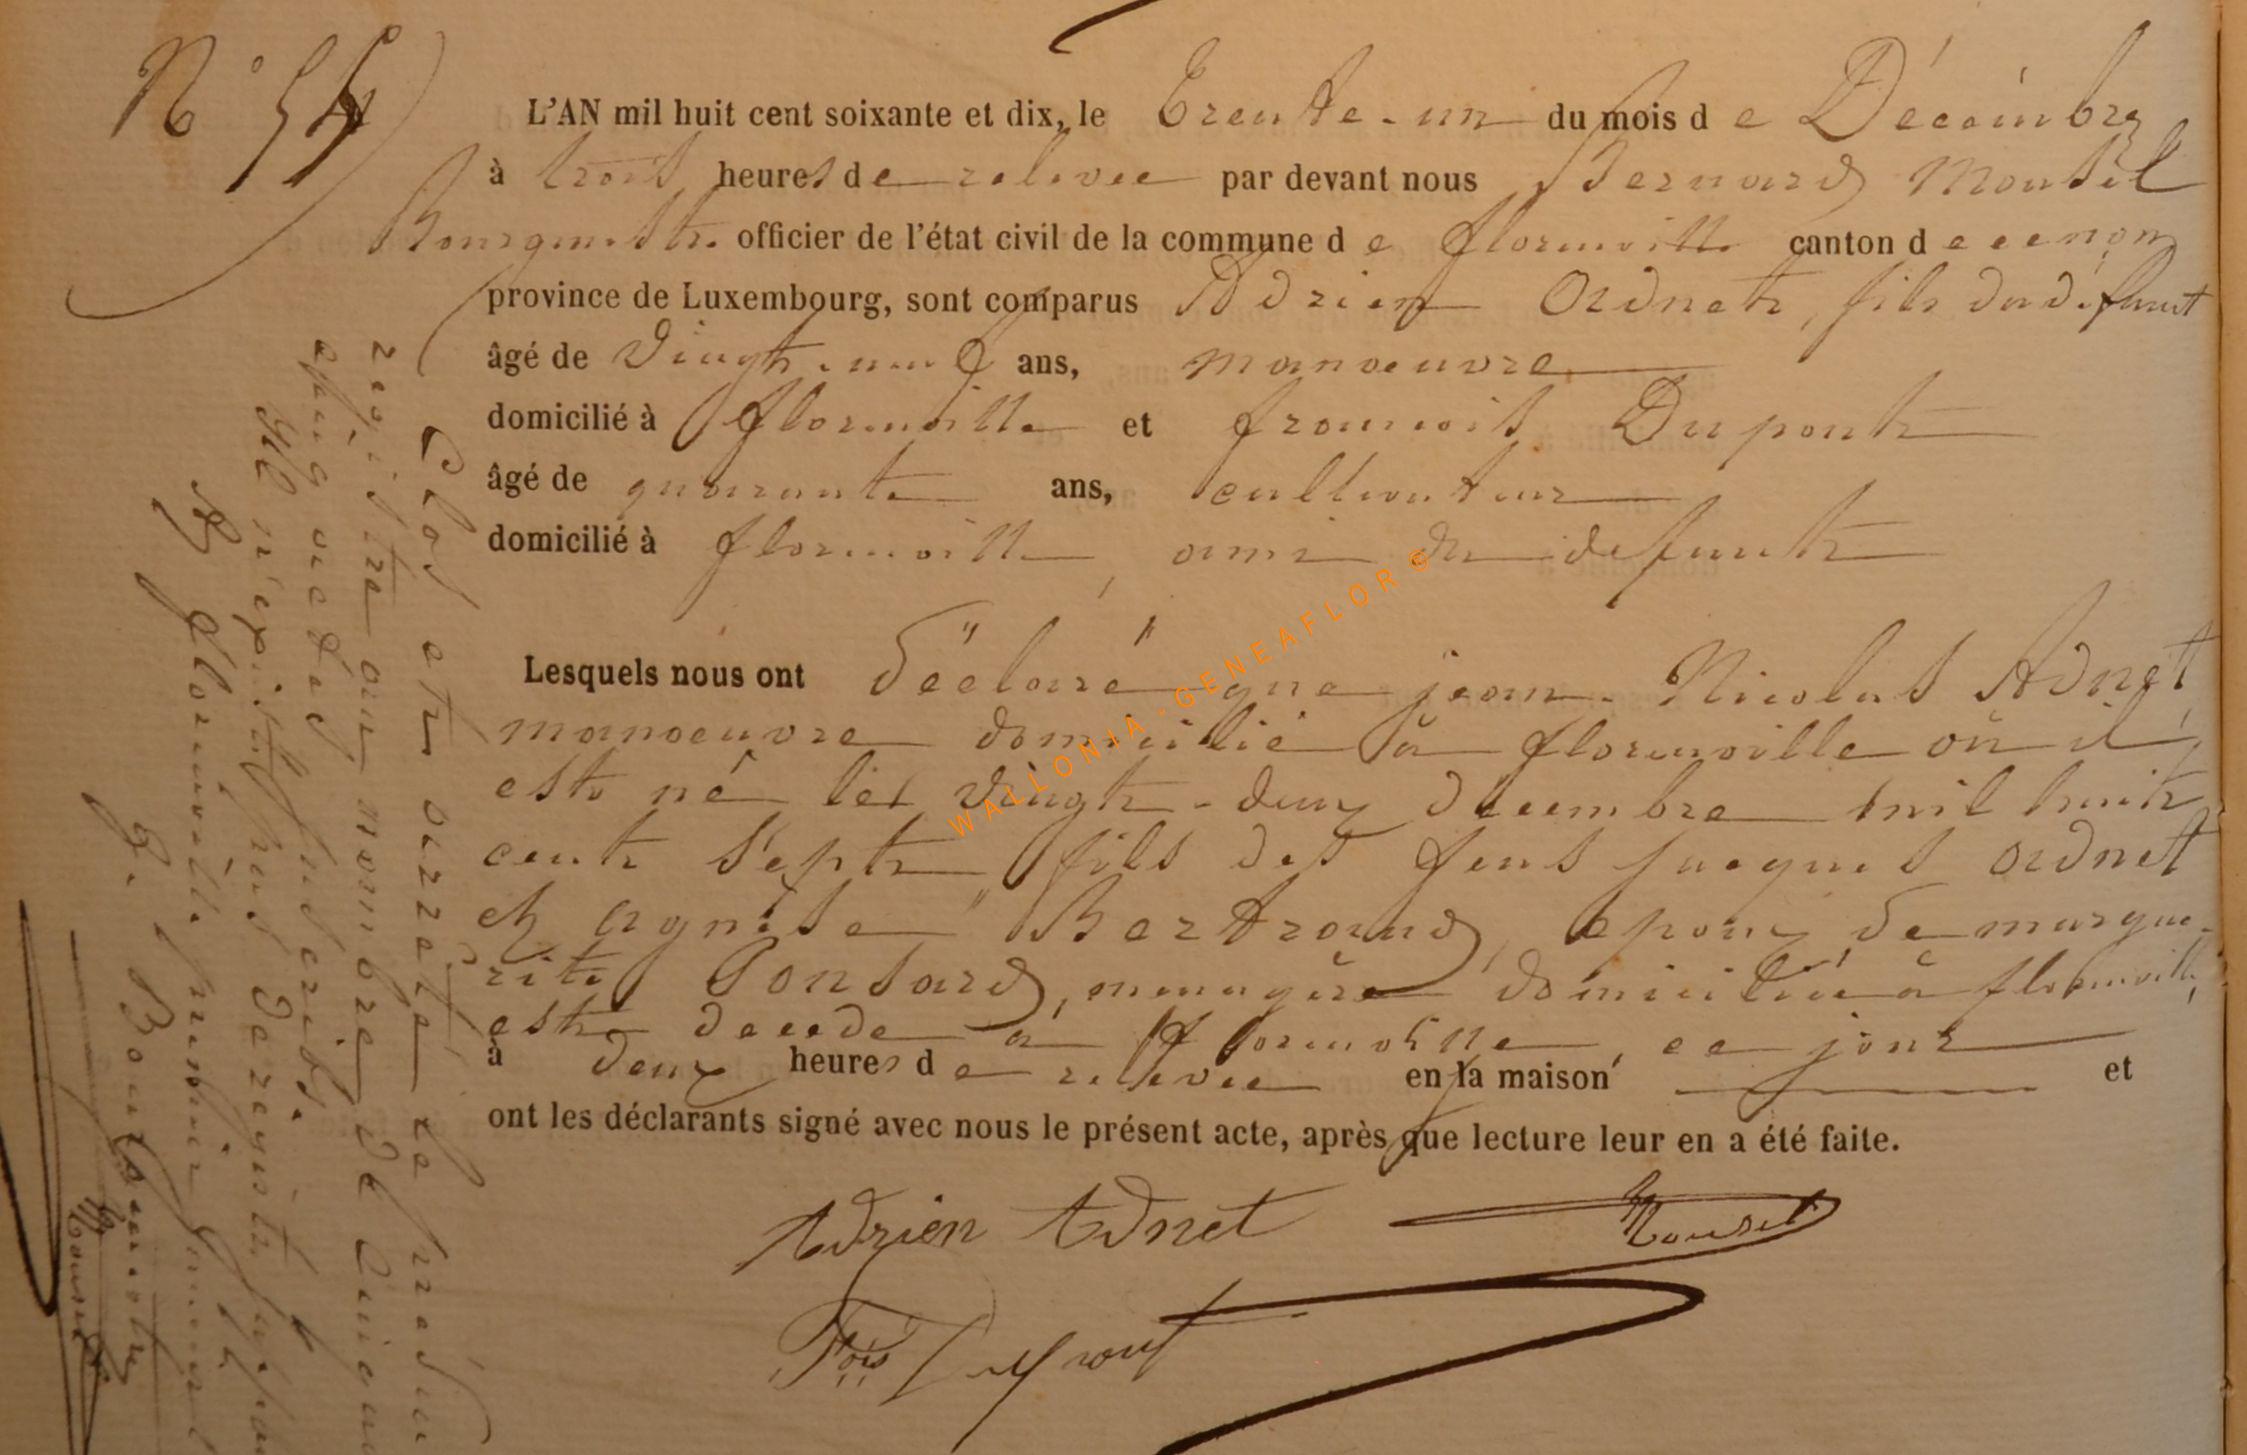 N° 54
L'AN mil huit cent soixante et dix, le Trente-un du mois de Décembre
à trois heures de relevée par devant nous Bernard Mousel
Bourgmestre officier de l'état civil de la commune de florenville canton de ce nom
province de Luxembourg, sont comparus Adrien Adnet, fils du défunt
âgé de vingt-neuf ans, manoeuvre
domicilié à florenville et françois Dupont
âgé de quarante ans, cultivateur
domicilié à florenville, ami du defunt
Lesquels nous ont déclaré que jean-Nicolas Adnet,
manoeuvre domicilié à florenville où il
est né le vingt-deux décembre mil huit
cent sept fils des feus jacques Adnet
et agnèse Bertrand, epoux de margue-
rite Ponsard, menagère domiciliée à florenville,
est decede à florenville, ce jour
à deux heures de relevée en sa maison et
ont les déclarants signé avec nous le présent acte, après que lecture leur en a été faite.
Adrien Adnet Mousel
Fois Dupont
Clos et arrété le présen
registre au nombre de Cinquan
après actes inscrits.
Il n'existe pas de registre
A florenville premier
B. Bourgmestre
Mousel
WALLONIA-GENEAFLOR ©